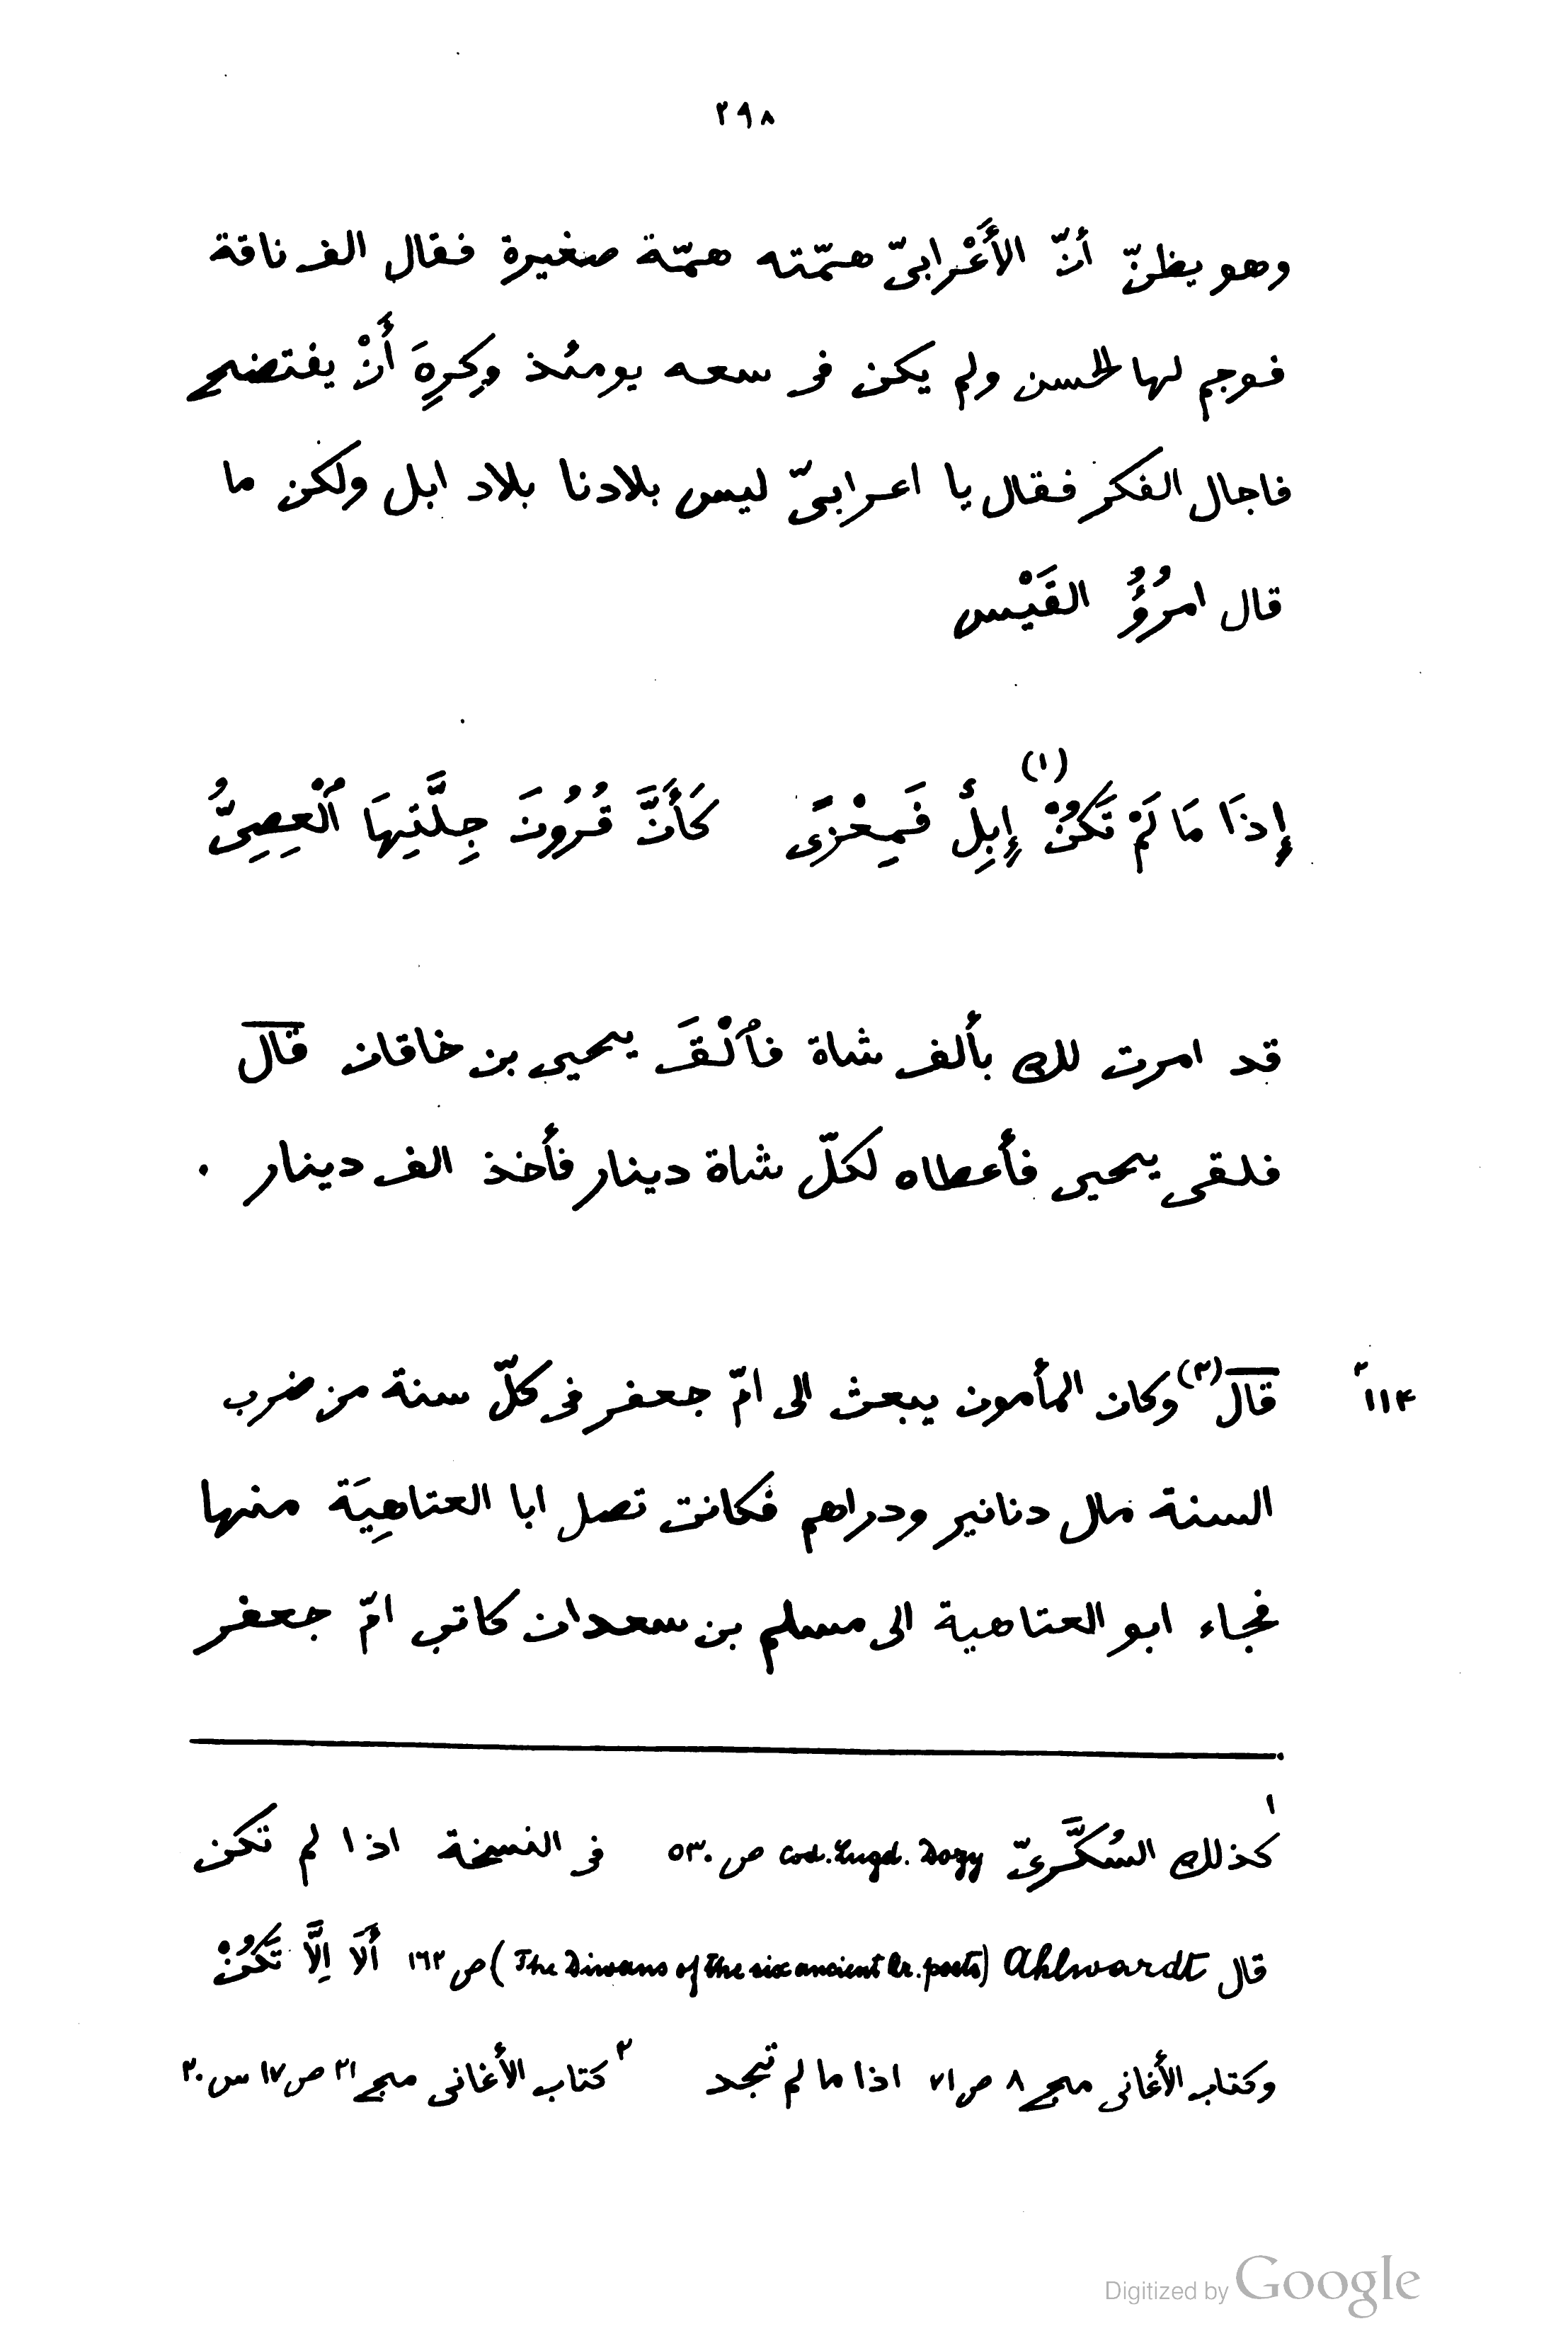 ٢٩٨
وهو يظنّ أنّ الأَعْرابىّ همّته همّة صغيرة فقال الف ناقة
فوجم لها الحسن ولم يكن فى سعه يومئذ وكَرِهَ أَنْ يفتضح
فاجال الفكر فقال يا اعرابىّ ليس بلادنا بلاد ابل ولكن ما
قال امرُؤُ القَيْس
إِذَا مَا لَمْ تَكُنْ (١) إِبِلٌ فَمِعْزًى كَأَنَّ قُرُونَ جِلَّتِهَا ٱلْعِصِىُّ
قد امرت لك بألف شاة فٱلْقَ يحيى بن خاقان قال
فلقى يحيى فأعطاه لكلّ شاة دينار فأخذ الف دينار .
١١٤ قال (٢) وكان المأمون يبعث الى امّ جعفر فى كلّ سنة من ضرب
السنة مال دنانير ودراهم فكانت تصل ابا العتاهِيَة منها
فجاء ابو العتاهية الى مسلم بن سعدان كاتب امّ جعفر
١ كذلك السُكَّرىّ cod. Lugd. Dozy ص ٥٣٠ فى النسخة اذا لم تكن
قال Ahlwardt (The Diwans of the six ancient Ar. poets) ص ١٦٢ أَلَا إِلَّا تَكُنْ
وكتاب الأغانى مجـ ٨ ص ٧١ اذا ما لم تجد ٢ كتاب الأغانى مجـ ٢١ ص ١٧ س ٢٠
Digitized by Google